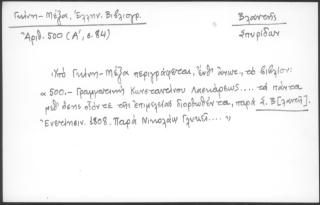 Γκίνη - Μέξα, Ἑλλην. Βιβλιογρ.
Ἀριθ. 500 (Α΄, σ. 84)
Βλαντῆς
Σπυρίδων
Ὑπό Γκίνη - Μέξα περιγράφεται, ἐνθ' ἀνωτ., τό βιβλίον:
« 500.- Γραμματική Κωνσταντίνου Λασκάρεως.... τά πάντα
μεθ' ὅσης οἷόν τε τῆς ἐπιμελείας διορθωθέντα, παρά Σ. Β[λαντῆ].
Ἐνετίησιν. 1808. Παρά Νικολάῳ Γλυκεῖ.... »